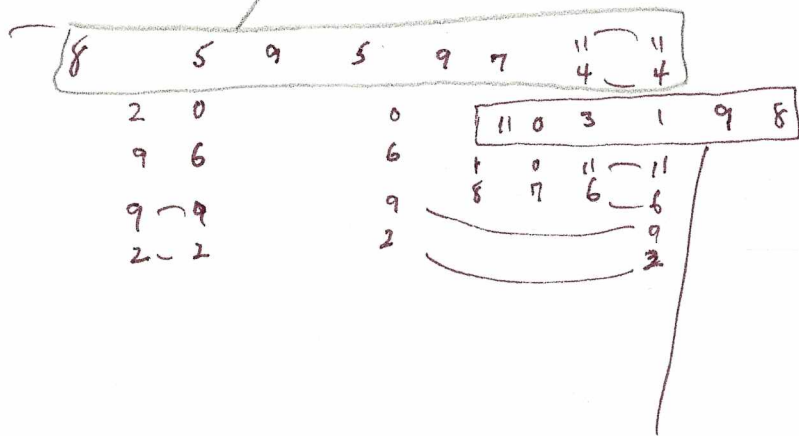 8 5 9 5 9 7 11 11
4 4
2 0 0 11 0 3 1 9 8
9 6 6 1 0 11 11
8 7 6 6
9 9 9 9
2 2 2 2